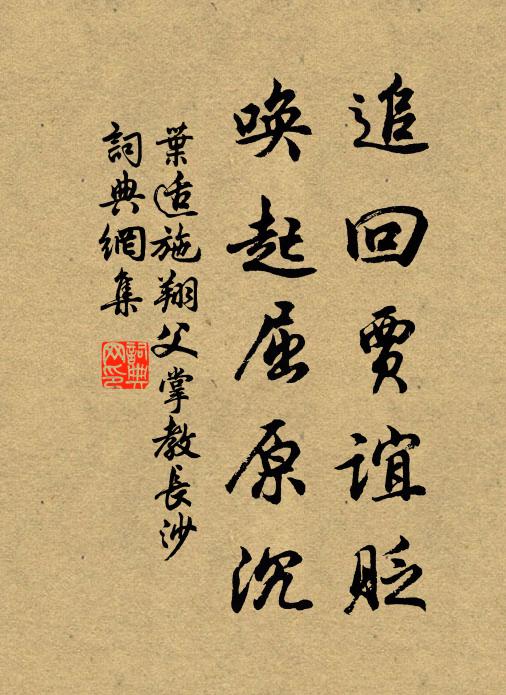 追回賈誼貶
喚起屈原沉
葉适施翔父掌教長沙
詞典網集
詞典網印